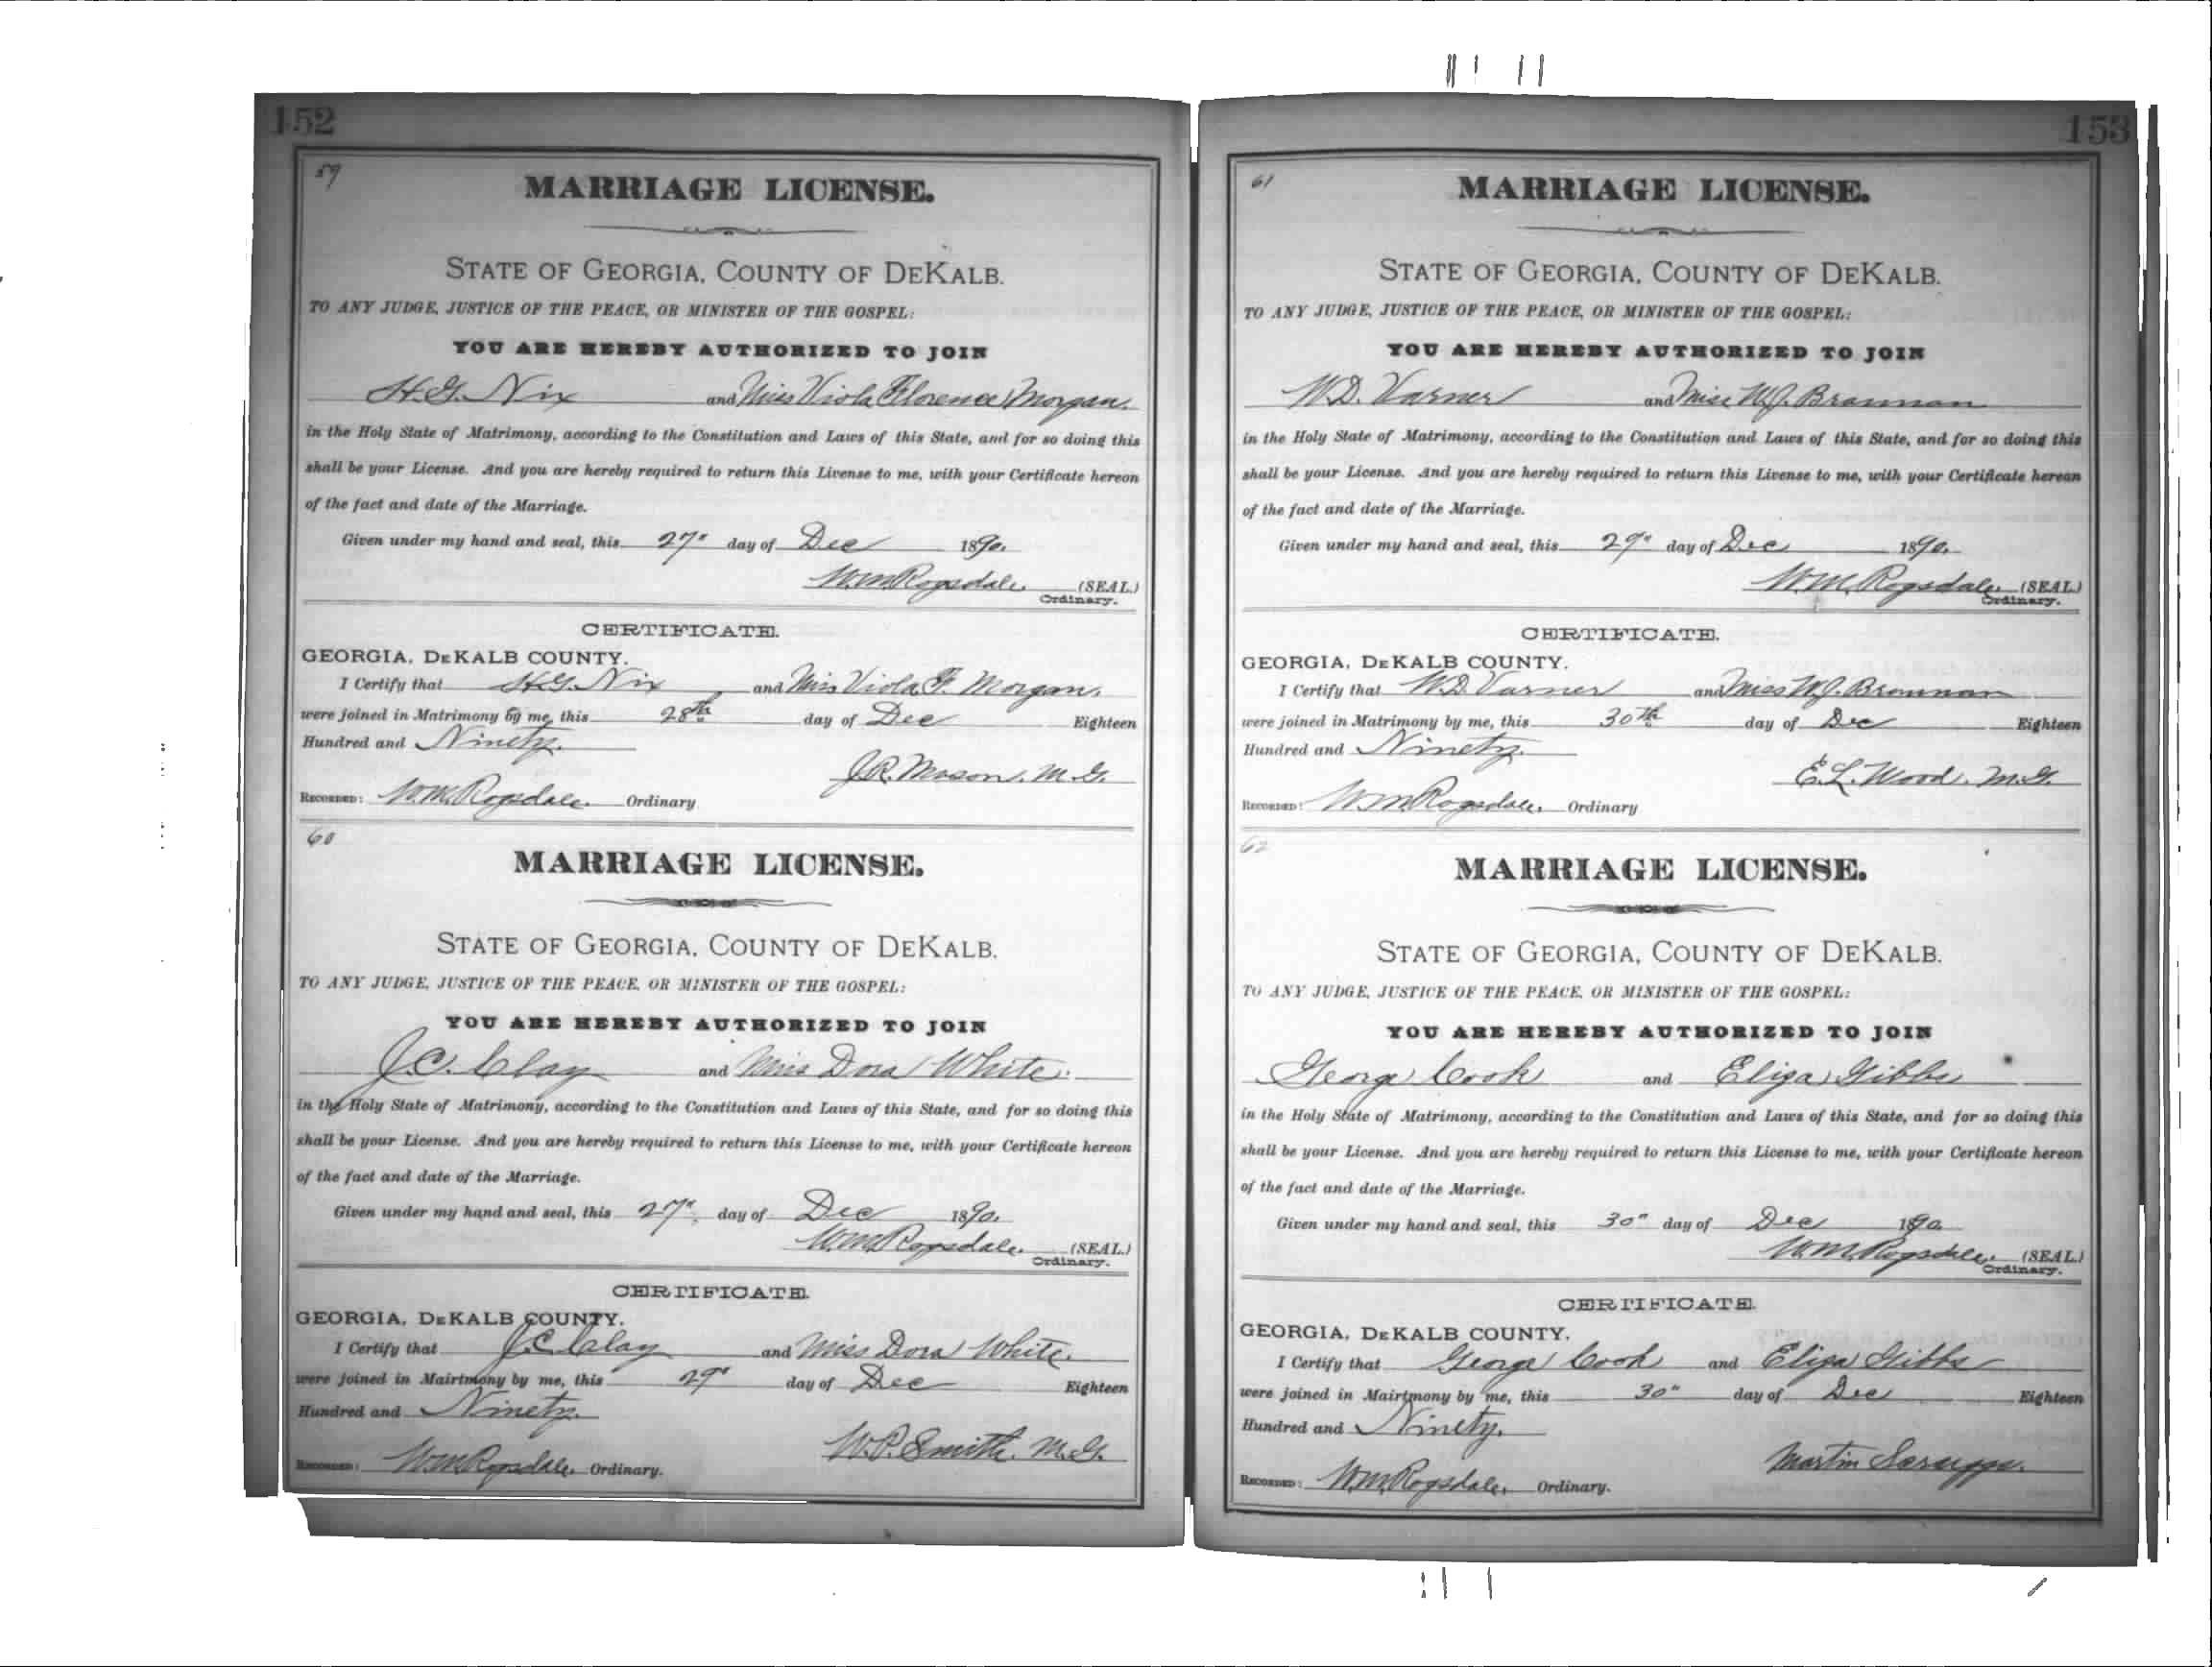 152
59
MARRIAGE LICENSE.
STATE OF GEORGIA, COUNTY OF DEKALB.
TO ANY JUDGE, JUSTICE OF THE PEACE, OR MINISTER OF THE GOSPEL:
YOU ARE HEREBY AUTHORIZED TO JOIN
H.G. Nix and Miss Viola Florence Morgan.
in the Holy State of Matrimony, according to the Constitution and Laws of this State, and for so doing this
shall be your License. And you are hereby required to return this License to me, with your Certificate hereon
of the fact and date of the Marriage.
Given under my hand and seal, this 27" day of Dec 1890.
W.M. Ragsdale. (SEAL.)
Ordinary.
CERTIFICATE.
GEORGIA, DEKALB COUNTY.
I Certify that H.G. Nix and Miss Viola F. Morgan.
were joined in Matrimony by me, this 28th day of Dec Eighteen
Hundred and Ninety.
J.R. Mason. M.G.
RECORDED: W.M. Ragsdale. Ordinary
60
MARRIAGE LICENSE.
STATE OF GEORGIA, COUNTY OF DEKALB.
TO ANY JUDGE, JUSTICE OF THE PEACE, OR MINISTER OF THE GOSPEL:
YOU ARE HEREBY AUTHORIZED TO JOIN
J.C. Clay and Miss Dora White.
in the Holy State of Matrimony, according to the Constitution and Laws of this State, and for so doing this
shall be your License. And you are hereby required to return this License to me, with your Certificate hereon
of the fact and date of the Marriage.
Given under my hand and seal, this 27", day of Dec 1890.
W.M. Ragsdale. (SEAL.)
Ordinary.
CERTIFICATE.
GEORGIA, DEKALB COUNTY.
I Certify that J.C. Clay and Miss Dora White.
were joined in Mairtmony by me, this 29" day of Dec Eighteen
Hundred and Ninety.
W.P. Smith. M.G.
RECORDED: W.M. Ragsdale. Ordinary.
153
61
MARRIAGE LICENSE.
STATE OF GEORGIA, COUNTY OF DEKALB.
TO ANY JUDGE, JUSTICE OF THE PEACE, OR MINISTER OF THE GOSPEL:
YOU ARE HEREBY AUTHORIZED TO JOIN
W.D. Varner and Miss M.J. Brannan
in the Holy State of Matrimony, according to the Constitution and Laws of this State, and for so doing this
shall be your License. And you are hereby required to return this License to me, with your Certificate hereon
of the fact and date of the Marriage.
Given under my hand and seal, this 29" day of Dec 1890.
W.M. Ragsdale. (SEAL.)
Ordinary.
CERTIFICATE.
GEORGIA, DEKALB COUNTY.
I Certify that W.D. Varner and Miss M.J. Brannan
were joined in Matrimony by me, this 30th day of Dec Eighteen
Hundred and Ninety.
E.L. Wood. M.G.
RECORDED: W.M. Ragsdale. Ordinary
62
MARRIAGE LICENSE.
STATE OF GEORGIA, COUNTY OF DEKALB.
TO ANY JUDGE, JUSTICE OF THE PEACE, OR MINISTER OF THE GOSPEL:
YOU ARE HEREBY AUTHORIZED TO JOIN
George Cook and Eliza Gibbs
in the Holy State of Matrimony, according to the Constitution and Laws of this State, and for so doing this
shall be your License. And you are hereby required to return this License to me, with your Certificate hereon
of the fact and date of the Marriage.
Given under my hand and seal, this 30" day of Dec 1890
W.M. Ragsdale. (SEAL.)
Ordinary.
CERTIFICATE.
GEORGIA, DEKALB COUNTY.
I Certify that George Cook and Eliza Gibbs
were joined in Mairtmony by me, this 30" day of Dec Eighteen
Hundred and Ninety.
Martin Scruggs.
RECORDED: W.M. Ragsdale. Ordinary.